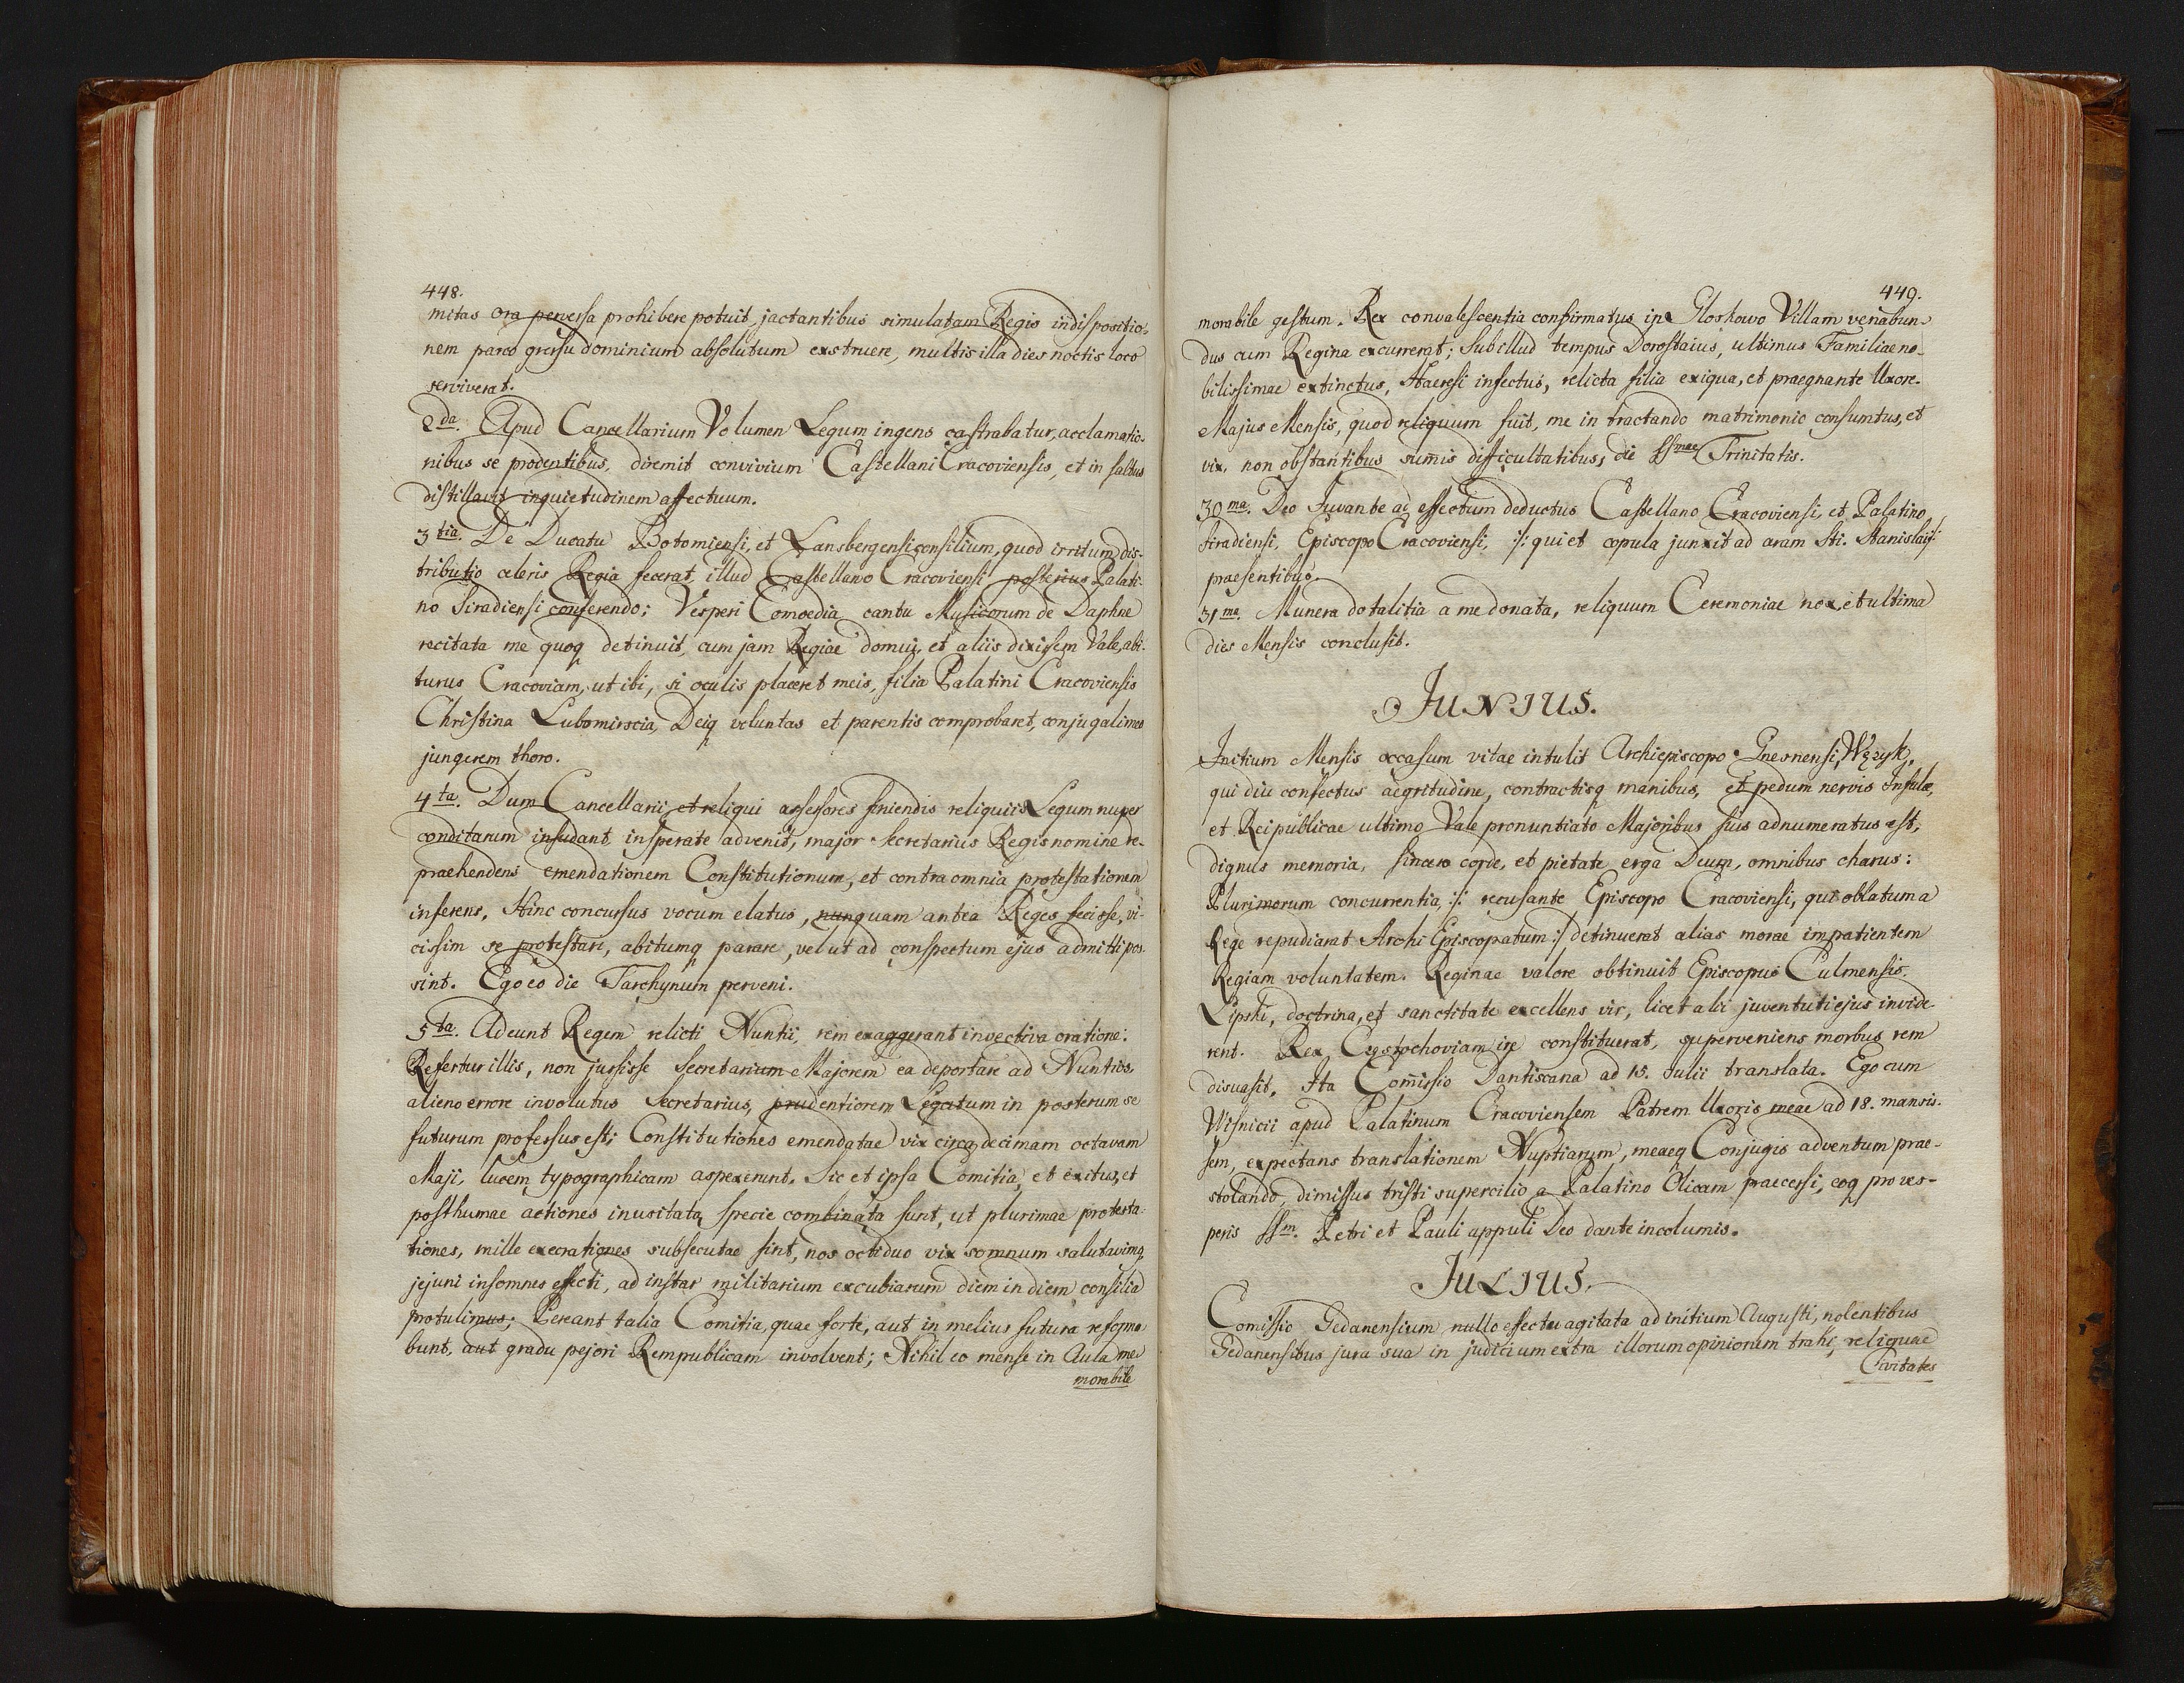 448.
mitas ora perversa prohibere potuit, jactantibus simulatam Regis indispositio-
nem pareo gressu dominium absolutum exstruere, multis illa dies noctis loco
serviverat.
2da. Apud Cancellarium Volumen Legum ingens castrabatur, acclamatio-
nibus se prodentibus, diremit convivium Castellani Cracoviensis, et in saltus
distillavit inquietudinem affectuum.
3tia. De Ducatu Botomiensi, et Lansbergensi consilium, quod irritum dis-
tributio celeris Regia fecerat, illud Castellano Cracoviensi posterius Palati-
no Siradiensi conferendo; Vesperi Comoedia cantu Musicorum de Daphne
recitata me quoq detinuit, cum jam Regiae domui, et aliis dixissem Vale, abi-
turus Cracoviam, ut ibi, si oculis placeret meis, filia Palatini Cracoviensis
Christina Lubomirscia, Deiq voluntas et parentis comprobaret, conjugali meo
jungerem thoro.
4ta. Dum Cancellarii et reliqui assessores finiendis reliquiis Legum nuper
conditarum insudant, insperate advenit, major Secretarius Regis nomine re-
praehendens emendationem Constitutionum, et contra omnia protestationem
inferens, Hinc concursus vocum elatus, nunquam antea Reges fecisse, vi-
cissim se protestari, abitumq parare, vel ut ad conspectum ejus admitti pos-
sint. Ego eo die Tarchynum perveni.
5ta. Adeunt Regem relicti Nuntii, rem exaggerant invectiva oratione:
Refertur illis, non jussisse Secretarium Majorem ea deportare ad Nuntios,
alieno errore involutus Secretarius, prudentiorem Legatum in posterum se
futurum professus est; Constitutiones emendatae vix circa decimam octavam
Maji, lucem typographicam aspexerunt. Sic et ipsa Comitia, et exitus, et
posthumae actiones inusitata specie combinata sunt, ut plurimae protesta-
tiones, mille execrationes subsecutae sint, nos octiduo vix somnum salutavimq
jejuni insomnes effecti, ad instar militarium excubiarum diem in diem consilia
protulimus; Pereant talia Comitia, quae forte, aut in melius futura reforma
bunt, aut gradu pejori Rempublicam involvent; Nihil eo mense in Aula me-
morabile
449.
morabile gestum. Rex convalescentia confirmatus in Gloskowo Villam venabun-
dus cum Regina excurrerat; Sub illud tempus Dorostaius, ultimus Familiae no-
bilissimae extinctus, Haeresi infectus, relicta filia exiqua, et praegnante Uxore.
Majus Mensis, quod reliquum fuit, me in tractando matrimonio consumtus, et
vix, non obstantibus sumis difficultatibus, die SSmae Trinitatis.
30ma. Deo Juvante ad effectum deductus Castellano Cracoviensi, et Palatino
Siradiensi, Episcopo Cracoviensi, /: qui et copula junxit ad aram Sti. Stanislai :/
praesentibus.
31ma. Munera dotalitia a me donata, reliquum Ceremoniae nox, et ultima
dies Mensis conclusit.
JUNIUS.
Initium Mensis occasum vitae intulit Archiepiscopo Gnesnensi, Wężyk,
qui diu confectus aegritudine, contractisq manibus, et pedum nervis Insulae,
et Reipublicae ultimo Vale pronuntiato Majoribus suis adnumeratus est,
dignus memoria, sincero corde, et pietate erga Deum, omnibus charus:
Plurimorum concurrentia, /: recusante Episcopo Cracoviensi, qui oblatum a
Rege repudiarat Archi Episcopatum :/ detinuerat alias morae impatientem
Regiam voluntatem. Reginae valore obtinuit Episcopus Culmensis
Lipski, doctrina, et sanctitate excellens vir, licet alii juventuti ejus invide
rent. Rex Czestochoviam ire constituerat, superveniens morbus rem
disuasit, Ita Comissio Dantiscana ad 15. Julii translata. Ego cum
Wisnicii apud Palatinum Cracoviensem Patrem Uxoris meae ad 18. mansis-
sem, expectans translationem Nuptiarum, meaeq Conjugis adventum prae-
stolando, dimissus tristi supercilio a Palatino Olicam praecessi, eoq pro ves-
peris SSm. Petri et Pauli appuli Deo dante incolumis.
JULIUS.
Comissio Gedanensium nullo effectu agitata ad initium Augusti, nolentibus
Gedanensibus jura sua in judicium extra illorum opinionem trahi, reliquae
Civitates